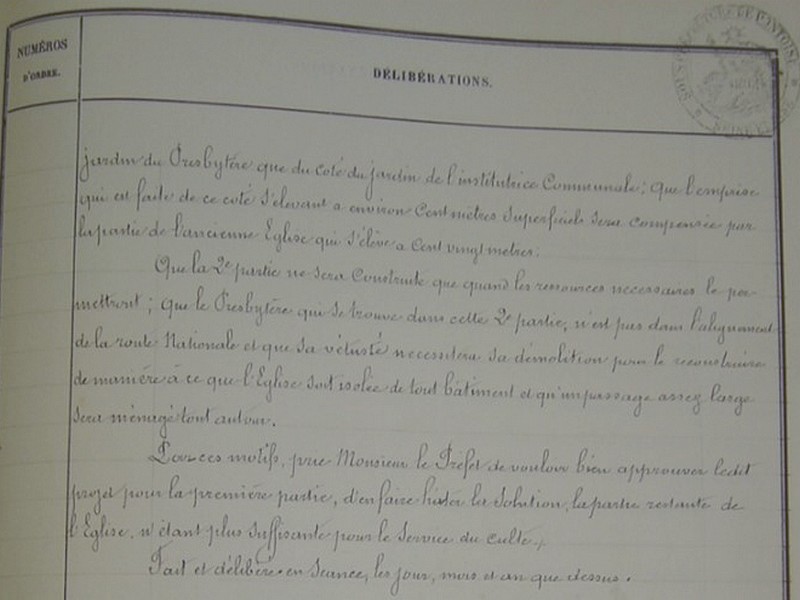 NUMÉROS
D'ORDRE.
DÉLIBÉRATIONS.
jardin du Presbytère que du coté du jardin de l'institutrice Communale; que l'emprise
qui est faite de ce coté s'élevant a environ Cent mètres superficiels sera compensée par
la partie de l'ancienne Eglise qui s'élève a Cent vingt metres.
Que la 2e partie ne sera Construite que quand les ressources necessaires le per-
mettront; que le Presbytère qui se trouve dans cette 2e partie, n'est pas dans l'alignement
de la route Nationale et que sa vétusté necessitera sa démolition pour le reconstruire
de manière à ce que l'Eglise soit isolée de tout bâtiment et qu'un passage assez large
sera ménagé tout autour.
Pour ces motifs, prie Monsieur le Préfet de vouloir bien approuver ledit
projet pour la première partie, d'en faire hater la Solution, la partie restante de
l'Eglise, n'étant plus suffisante pour le Service du culte.
Fait et délibéré en Seance, les jour, mois et an que dessus.